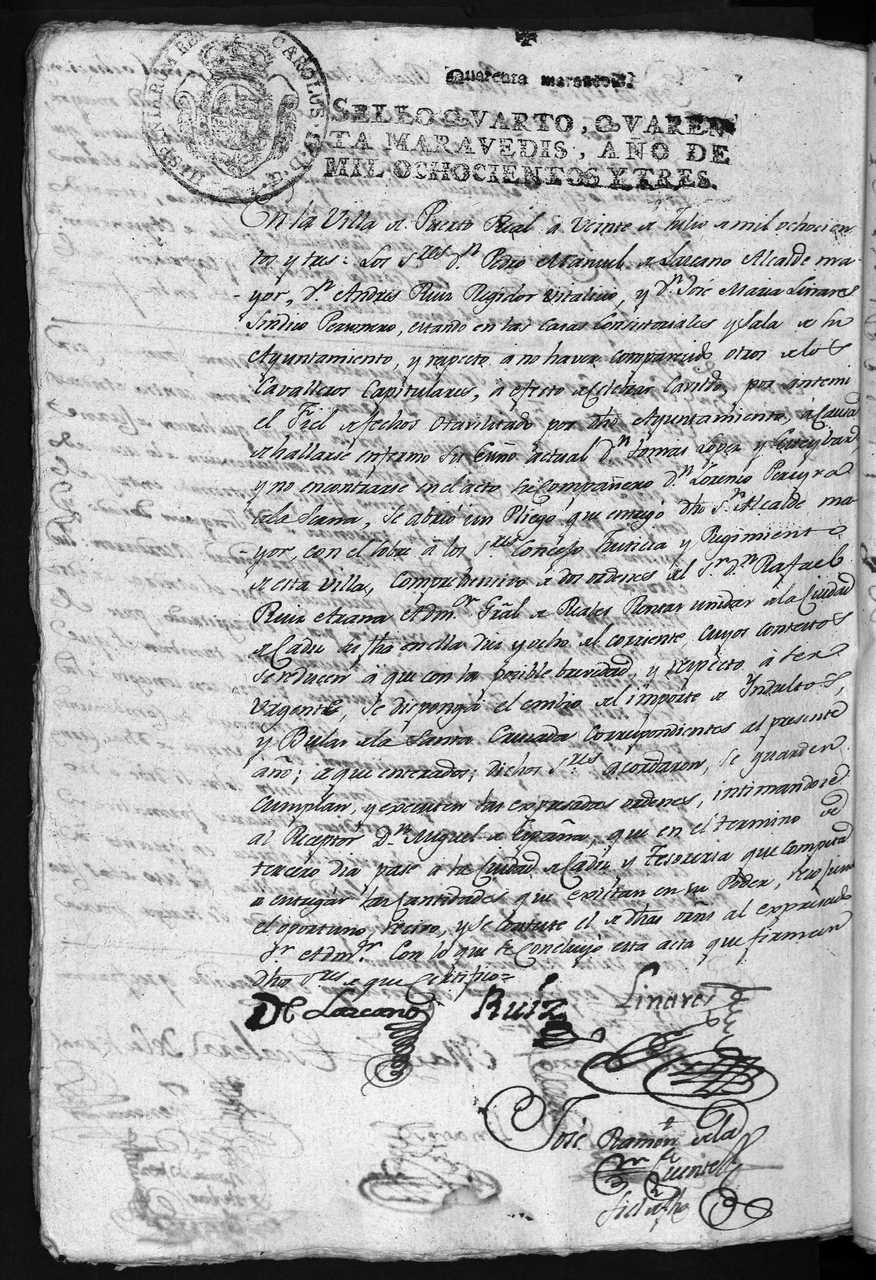 CAROLUS IV D. G. HISPANIARUM REX
Quarenta maravedis.
SELLO QVARTO, QVAREN
TA MARAVEDIS, AÑO DE
MIL OCHOCIENTOS Y TRES.
En la Villa de Puerto Real a Veinte de Julio de mil ochocien
tos y tres: Los S.res D.n Pedro Manuel de Lazcano Alcalde ma
yor, D.n Andres Ruiz Regidor Vitalicio, y D.n José Maria Linares
Sindico Personero, estando en las Casas Consistoriales y Sala de su
Ayuntamiento, y respecto à no haver comparecido otros de los
Cavalleros Capitulares, à efecto de Celebrar Cavildo, por ante mi
el Fiel de fechos havilitado por dho Ayuntamiento, à Causa
de hallarse enfermo su Essno actual D.n Tomas Lopez y
y no encontrarse en el acto su Compañero D.n Lorenzo Pereyra
de la Serna, se abrió un Pliego que entregó dho S.r Alcalde ma
yor, con el sobre à los S.res Concejo Justicia y Regimiento
de esta Villa, Comprehensivo de dos ordenes del S.r D.n Rafael
Ruiz Arana Adm.or Gral de Reales Rentas unidas de la Ciudad
de Cadiz su fha en ella diez y ocho del corriente cuyos contextos
se reducen à que con la posible brevedad, y respecto à ser
Urgente, se disponga el embio del importe de Indultos,
y Bulas de la Santa Cruzada Correspondientes al presente
año; à que enterados, dichos S.res acordaron, se guarden
Cumplan, y executen las expresadas ordenes, intimandose
al Receptor D.n Miguel de España, que en el termino de
tercero dia pase à la Ciudad de Cadiz y Tesoreria que competa
à entregar las Cantidades que existan en su Poder,
el oportuno recivo, y se conteste el de dhas orns al expresado
S.r Adm.or Con lo que se Concluyó esta acta que firmaron
dhos S.res de que Certifico=
De Lazcano Ruiz Linares
José Ramon de la
Fiel de fho